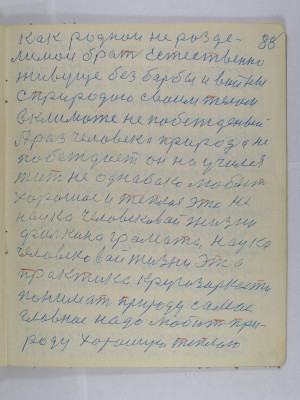 как родной не разде- 88
лимой брат Естественно
живуще без барбы и вайны
с природаю своим телом
в климате не побежденый
А раз человека природа не
побеждает он научился
жит не однабако мобит
хорошае и теплае это не
наука человековай жизни
физ кина грамата, наука
человековай жизни Эта
практика кругазаркасти
понимат природу самае
главнае надо любит при-
роду хорошую теплаю